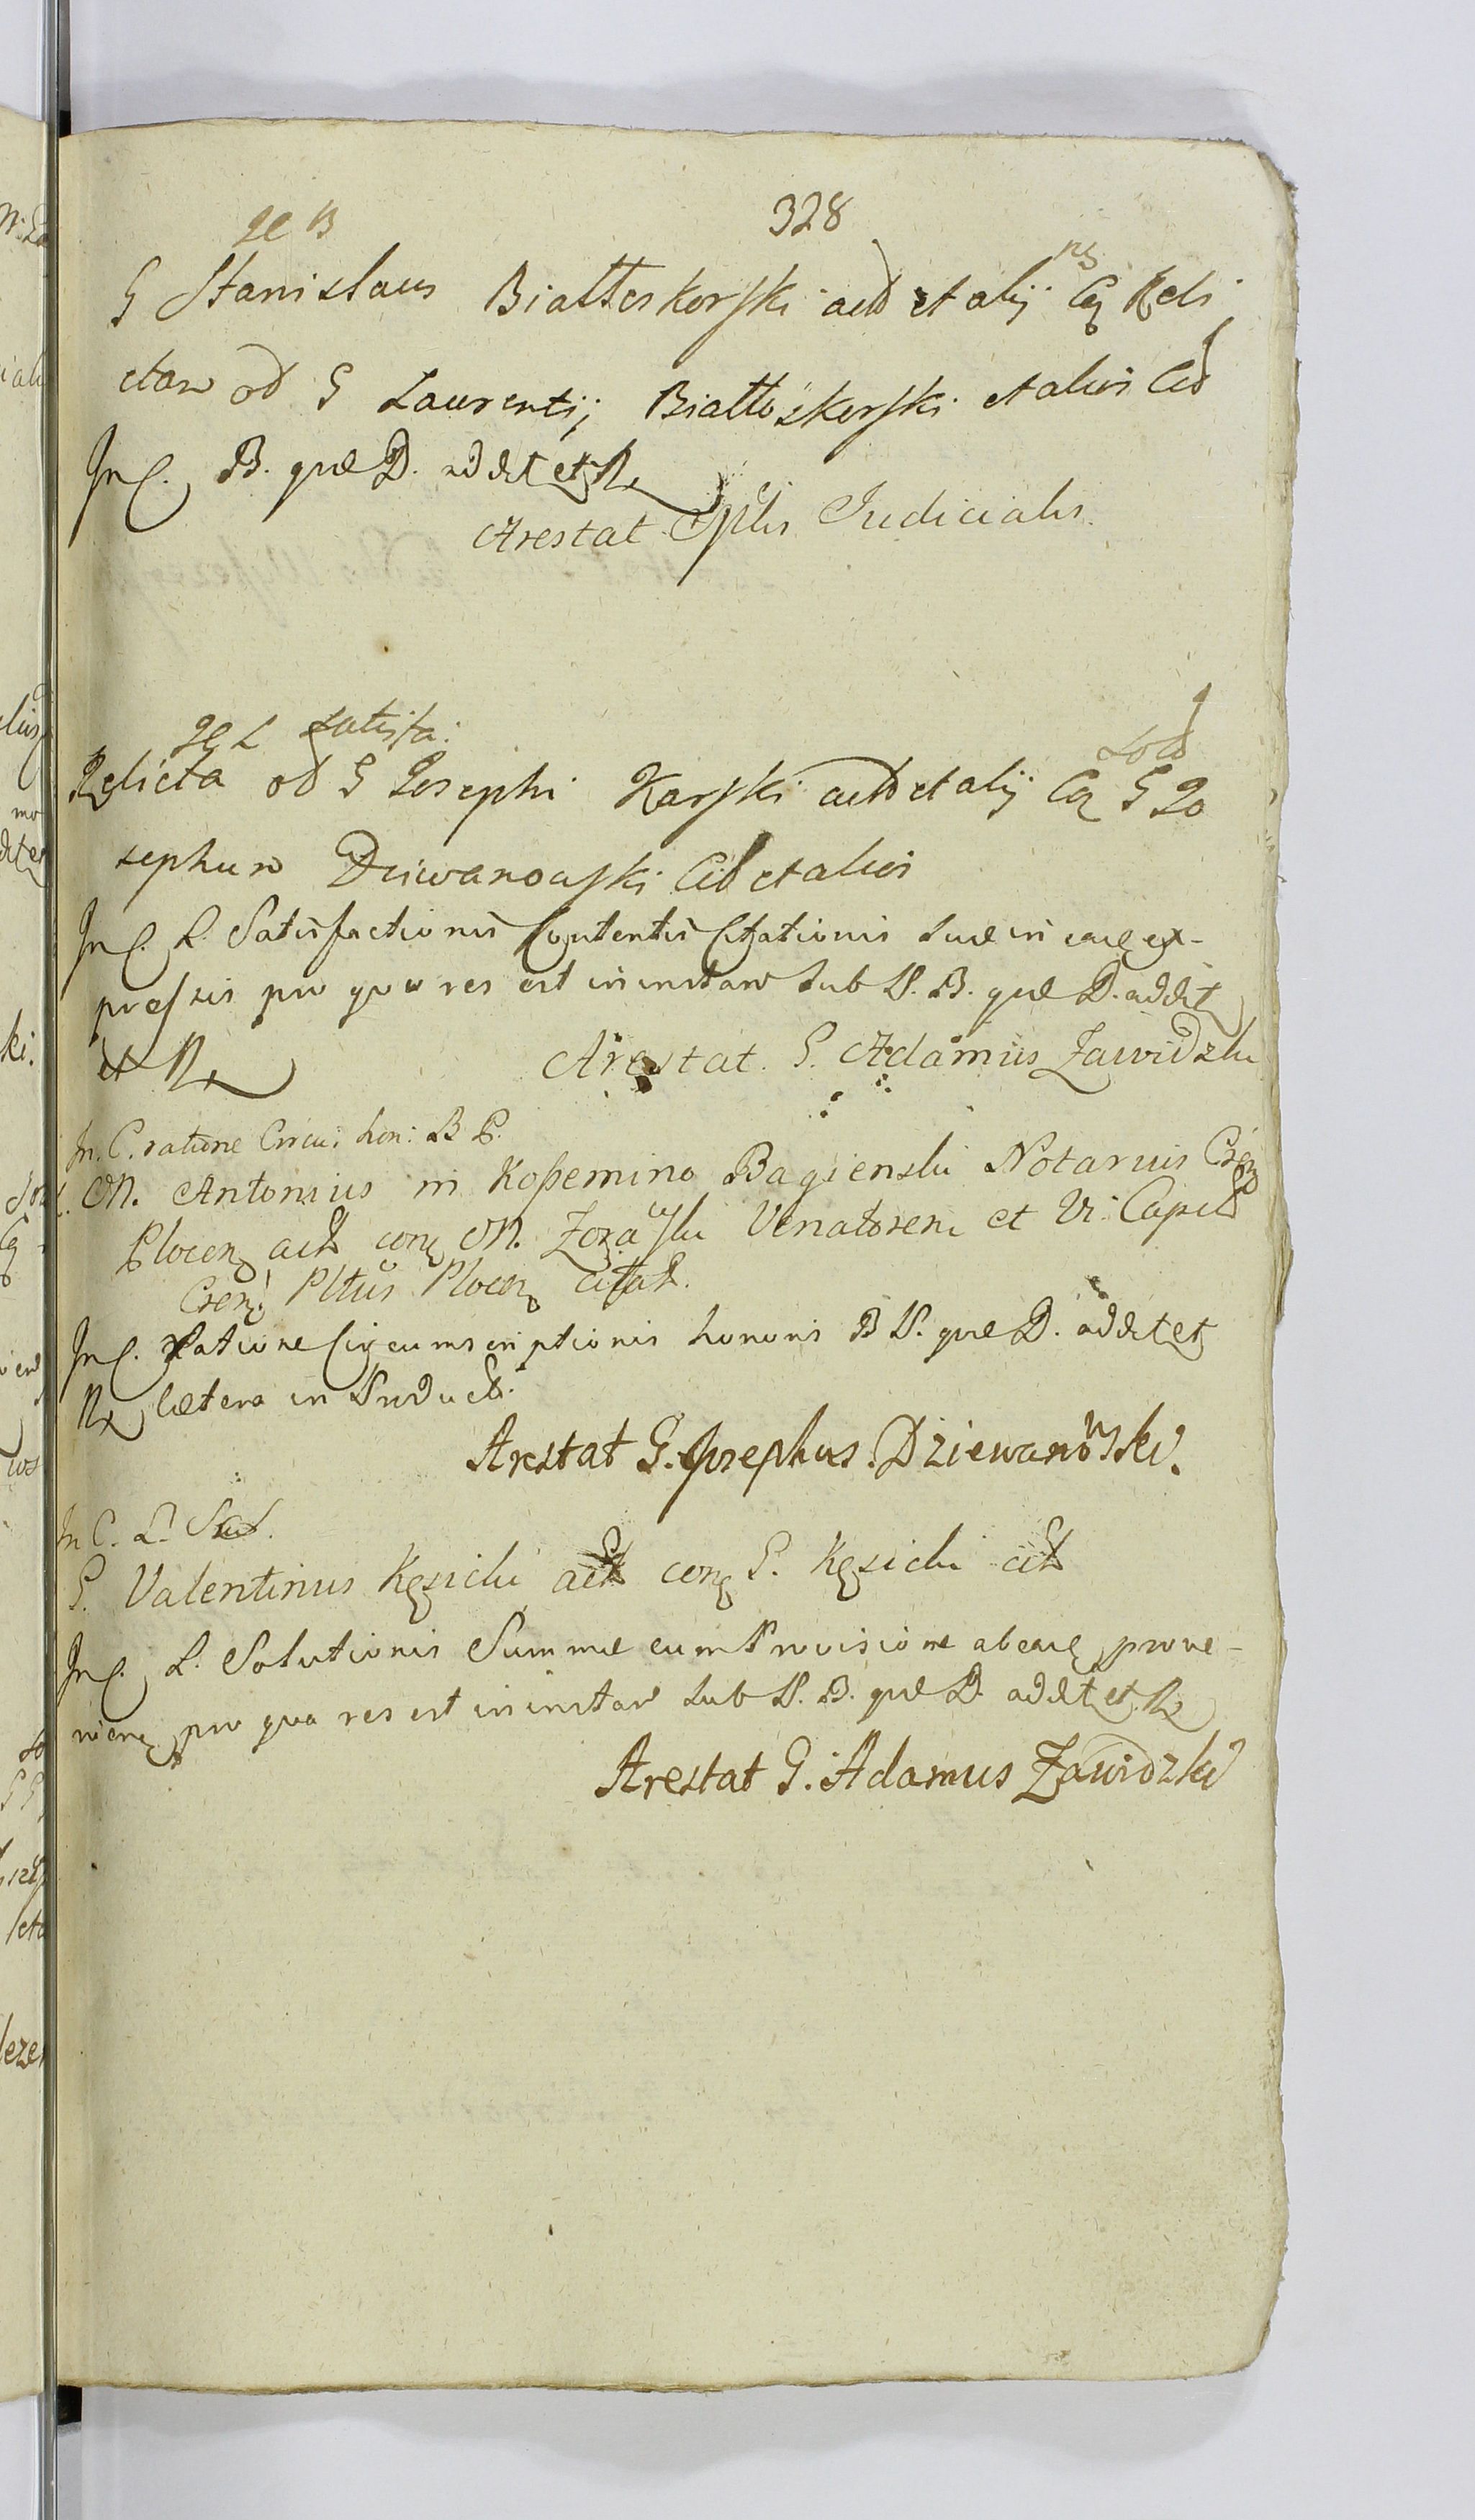 328
G Stanislaus Biattoskorski act et alij Cq Reli
ctam od G Laurentij Biattoskorski et alios Cit
In C. B. quæ D. addet et R
Arestat Gflis Judicialis.
L satisfa:
Relicta od G Josephi Karski act et alij Cq G Jo
sephum Dziwanowski Cit et alios
In C. L. Satisfactionis Contentis Citationis suæ in eaq ex-
pressis pro quo res est in instan sub P. B. quæ D. addet
et R
Arestat. G. Adamus Zawidzki
In. C. ratione Circu: hon: B P.
M. Antonius in Kossemino Bagienski Notarius
Plocen act con M. Zorawski Venatorem et Vi: Capit
Cren. Pltus Plocen citat.
In C. Ratione Circumscriptionis honoris B P. quæ D. addet et
R Cætera in Product.
Arestat G. Josephus. Dziewanowski.
In C. L.
G. Valentinus Kęsicki act con G. Kęsicki cit
In C. L. Solutionis Summæ cum Provisione ab eaq prove-
nien pro qua res est in instan sub P. B. quæ D. addet et R
Arestat G. Adamus Zawidzki